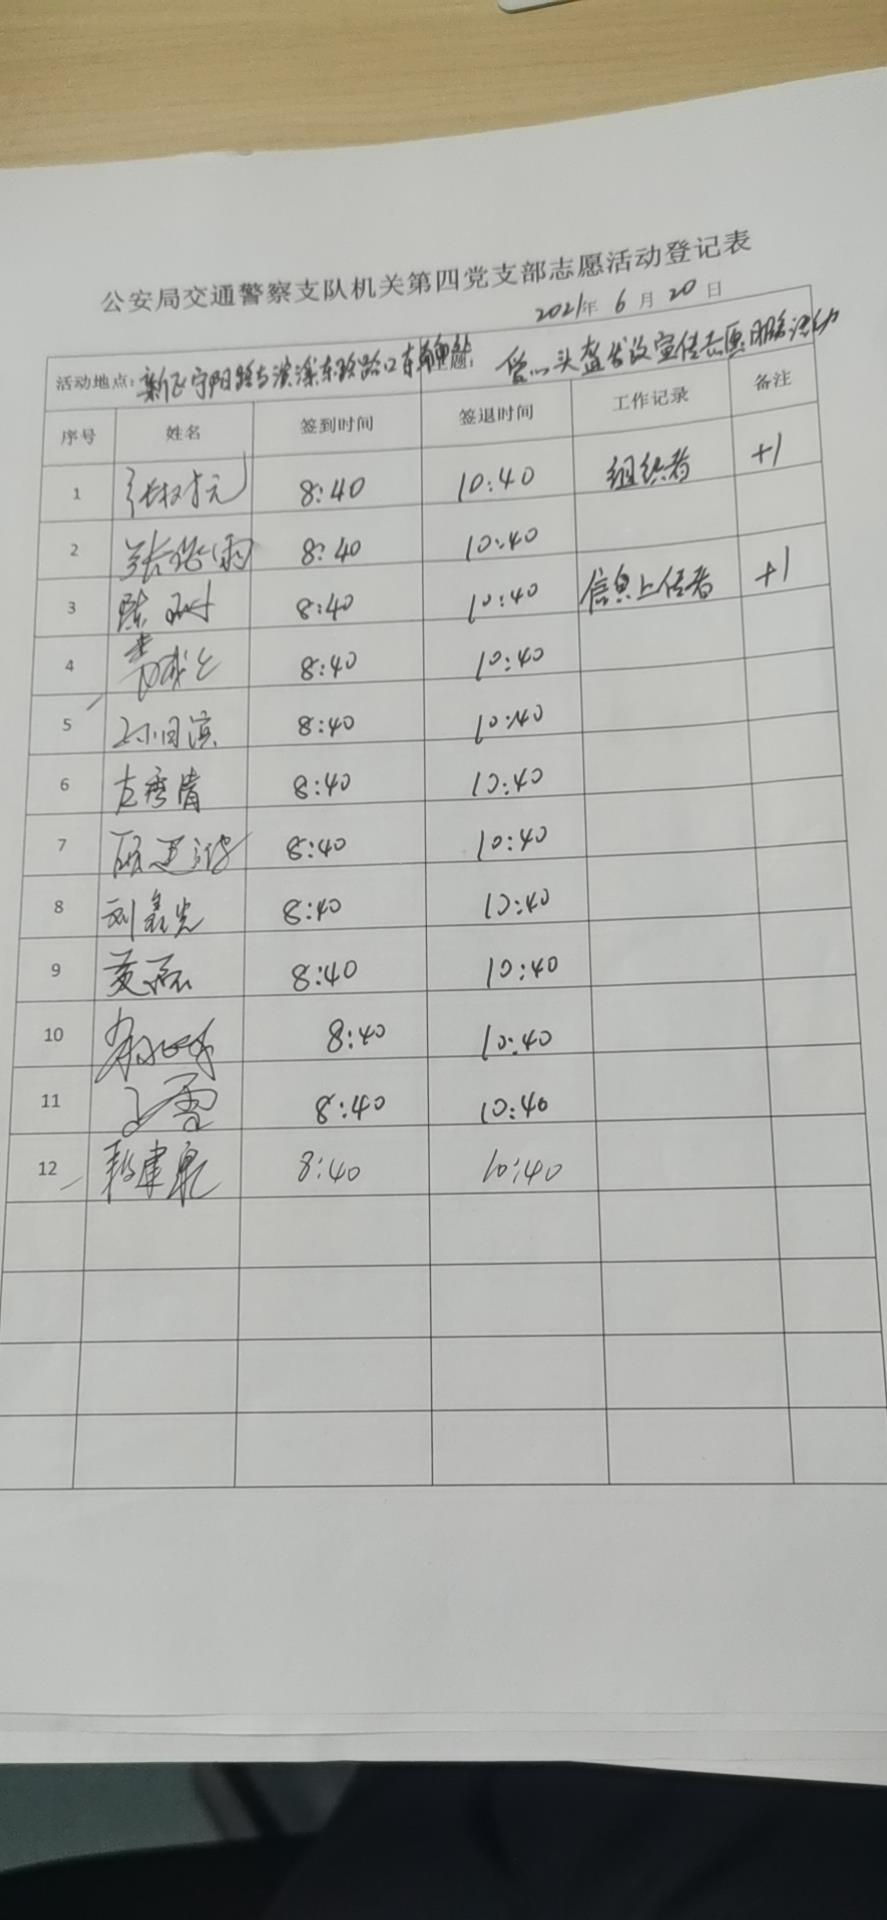 公安局交通警察支队机关第四党支部志愿活动登记表
2021年 6 月 20 日
活动地点: 新区宁阳路与滨溪东路路口东 题: 头盔发放宣传志愿服务活动
序号 姓名 签到时间 签退时间 工作记录 备注
1 8:40 10:40 组织者 +1
2 8:40 10:40
3 陈 8:40 10:40 信息上传者 +1
4 8:40 10:40
5 8:40 10:40
6 左秀清 8:40 10:40
7 8:40 10:40
8 刘鑫光 8:40 10:40
9 8:40 10:40
10 8:40 10:40
11 8:40 10:40
12 8:40 10:40